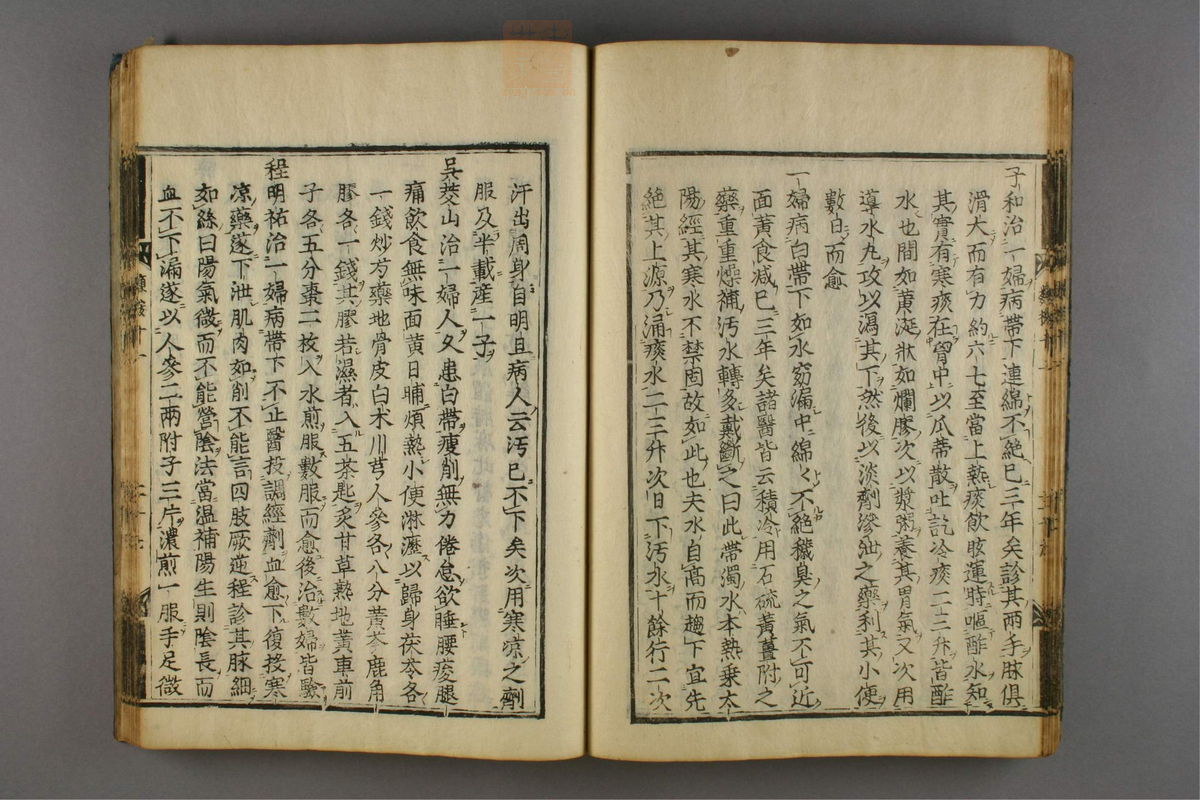 子和治一婦病帶下連綿不絕已三年矣診其兩手脉俱
滑大而有力約六七至當上熱痰飲眩運時嘔酢水知
其實有寒痰在胷中以瓜蒂散吐訖冷痰二三升皆酢
水也間如黄涎狀如爛膠次以漿粥養其胃氣又次用
導水丸攻以瀉其下然後以淡劑滲泄之藥利其小便
數日而愈
一婦病白帶下如水窈漏中綿〱不絕穢臭之氣不可近
面黄食减已三年矣諸醫皆云積冷用石硫黄薑附之
藥重重燥補汚水轉多戴斷之曰此帶濁水本熱乗太
陽經其寒水不禁固故如此也夫水自高而趨下宜先
絕其上源乃涌痰水二三升次日下汚水十餘行二次
汗出周身自明且病人云汚已不下矣次用寒凉之劑
服及半載産一子
吳茭山治一婦人久患白帶瘦削無力倦怠欲睡腰痠腿
痛飲食無味面黄日晡煩熱小便淋瀝以歸身茯苓各
一錢炒芍藥地骨皮白术川芎人參各八分黄芩鹿角
膠各一錢其膠若濕者入五茶匙炙甘草熟地黄車前
子各五分棗二枚入水煎服數服而愈後治數婦皆驗
程明祐治一婦病帶下不止醫投調經劑血愈下復投寒
凉藥遂下泄肌肉如削不能言四肢厥逆程診其脉細
如絲曰陽氣微而不能營陰法當温補陽生則陰長而
血不下漏遂以人參二兩附子三片濃煎一服手足微
類案十一